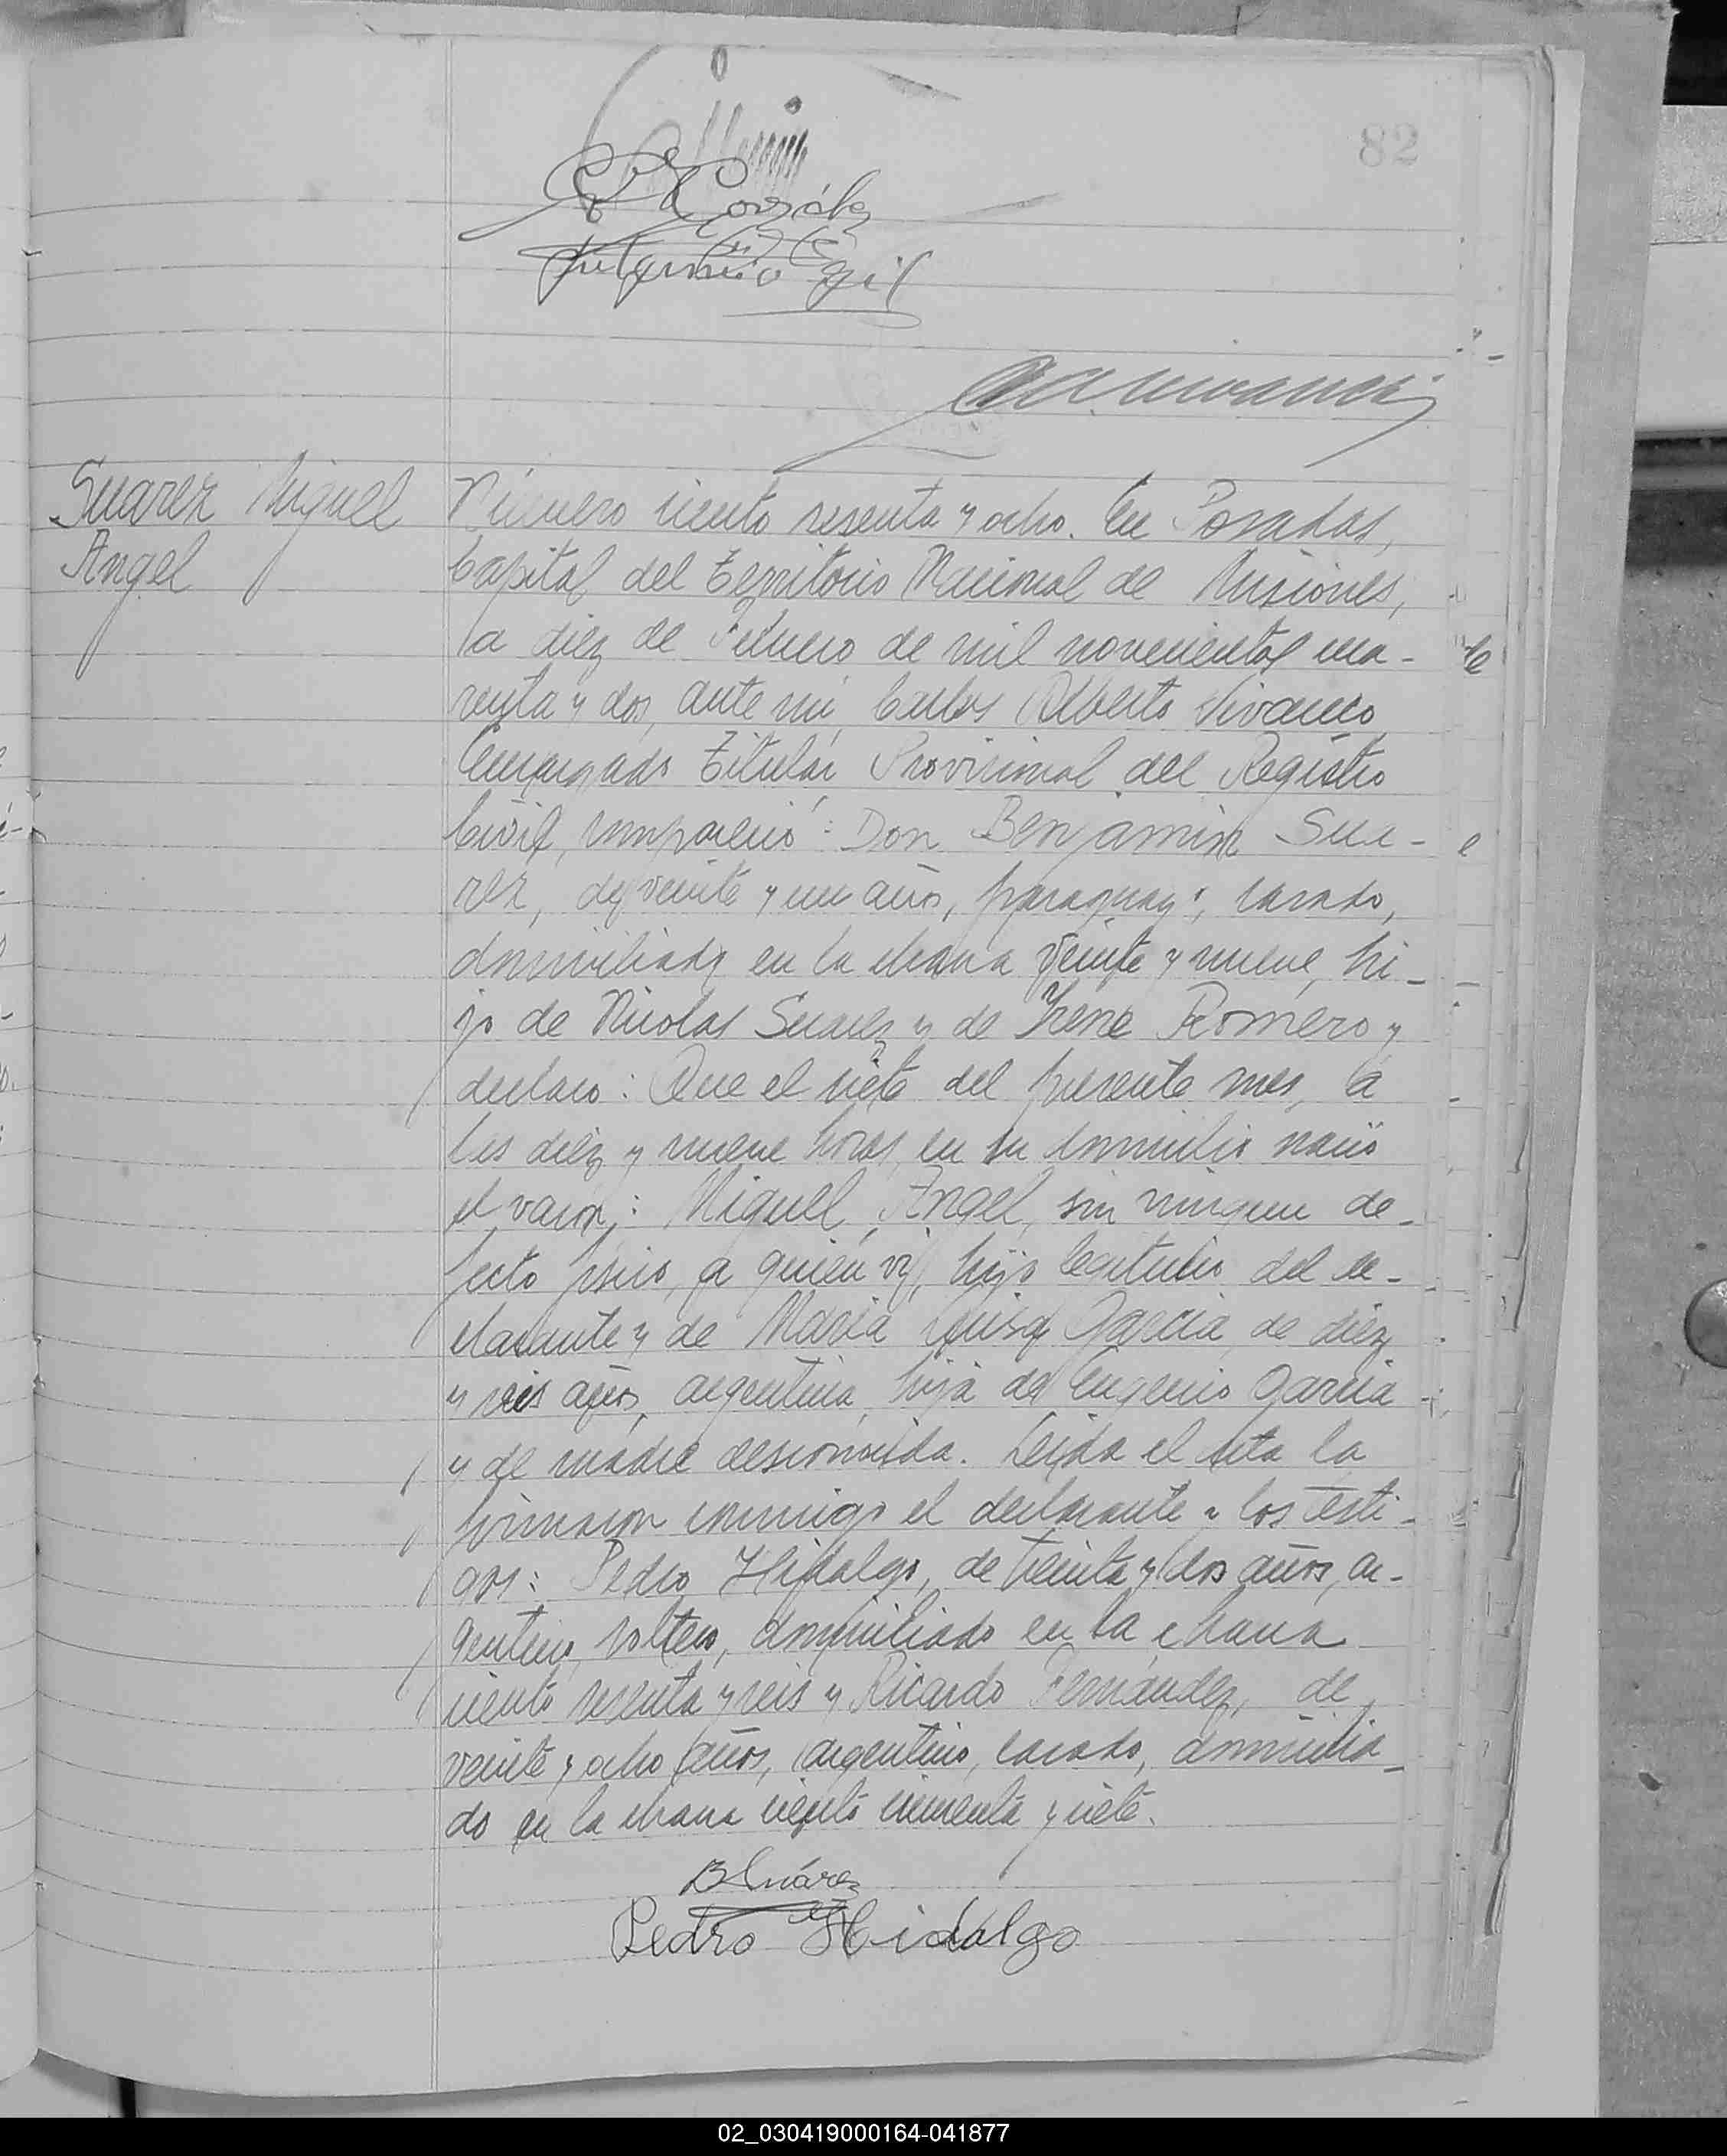 82
González
Gil
Suarez Miguel
Angel
Número ciento sesenta y ocho. En Posadas,
Capital del Territorio Nacional de Misiones,
a diez de Febrero de mil novecientos cua-
renta y dos, ante mi, Carlos Alberto Vivanco,
Encargado Titular Provisional del Registro
Civil, compareció: Don Benjamin Sua-
rez, de veinte y un años, paraguayo, casado,
domiciliado en la chacra veinte y nueve, hi-
jo de Nicolas Suarez y de Irene Romero y
declaro: Que el siete del presente mes, a
las diez y nueve horas, en su domicilio nació
el varon: Miguel Angel, sin ningun de-
fecto fisico, a quien vi, hijo legitimo del de-
clarante y de Maria Luisa Garcia, de diez
y seis años, argentina, hija de Eugenio Garcia
y de madre desconocida. Leida el acta la
firmaron conmigo el declarante y los testi-
gos: Pedro Hidalgo, de treinta y dos años, ar-
gentino, soltero, domiciliado en la chacra
ciento sesenta y seis y Ricardo Fernández, de
veinte y ocho años, argentino, casado, domicilia-
do en la chacra ciento cincuenta y siete.
B Suárez
Pedro Hidalgo
02_030419000164-041877